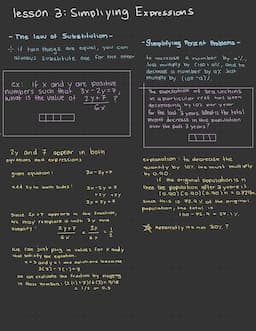 lesson 3: Simplifying Expressions
- The Law of Substitution -
if two things are equal, you can
always substitute one for the other
ex: If x and y are positive
numbers such that 3x-2y=7,
what is the value of 2y+7 ?
6x
2y and 7 appear in both
equations and expressions
given equation: 3x-2y=7
add 2y to both sides: 3x-2y=7
+2y +2y
3x=2y+7
Since 2y+7 appears in the fraction,
we may replace it with 3x and
simplify: 2y+7 = 3x = 1
6x 6x 2
We can just plug in values for x and y
that satisfy the equation.
x=3 and y=1 are solutions because
3(3)-2(1)=7
We can evaluate the fraction by plugging
in those numbers: (2(1)+7)/6(3)=9/18
= 1/2 or 0.5
- Simplifying Percent Problems -
to increase a number by n%,
just multiply by (100+n)%, and to
decrease a number by n% just
multiply by (100-n)%.
The population of sea urchins
in a particular reef has been
decreasing by 10% per year
for the last 3 years. What is the total
percent decrease in the population
over the past 3 years?
explanation: to decrease the
quantity by 10% we must multiply
by 0.90
If the original population is n
then the population after 3 years is
(0.90)(0.90)(0.90)n = 0.729n
since this is 72.9% of the original
population, the total is
100-72.9 = 27.1%